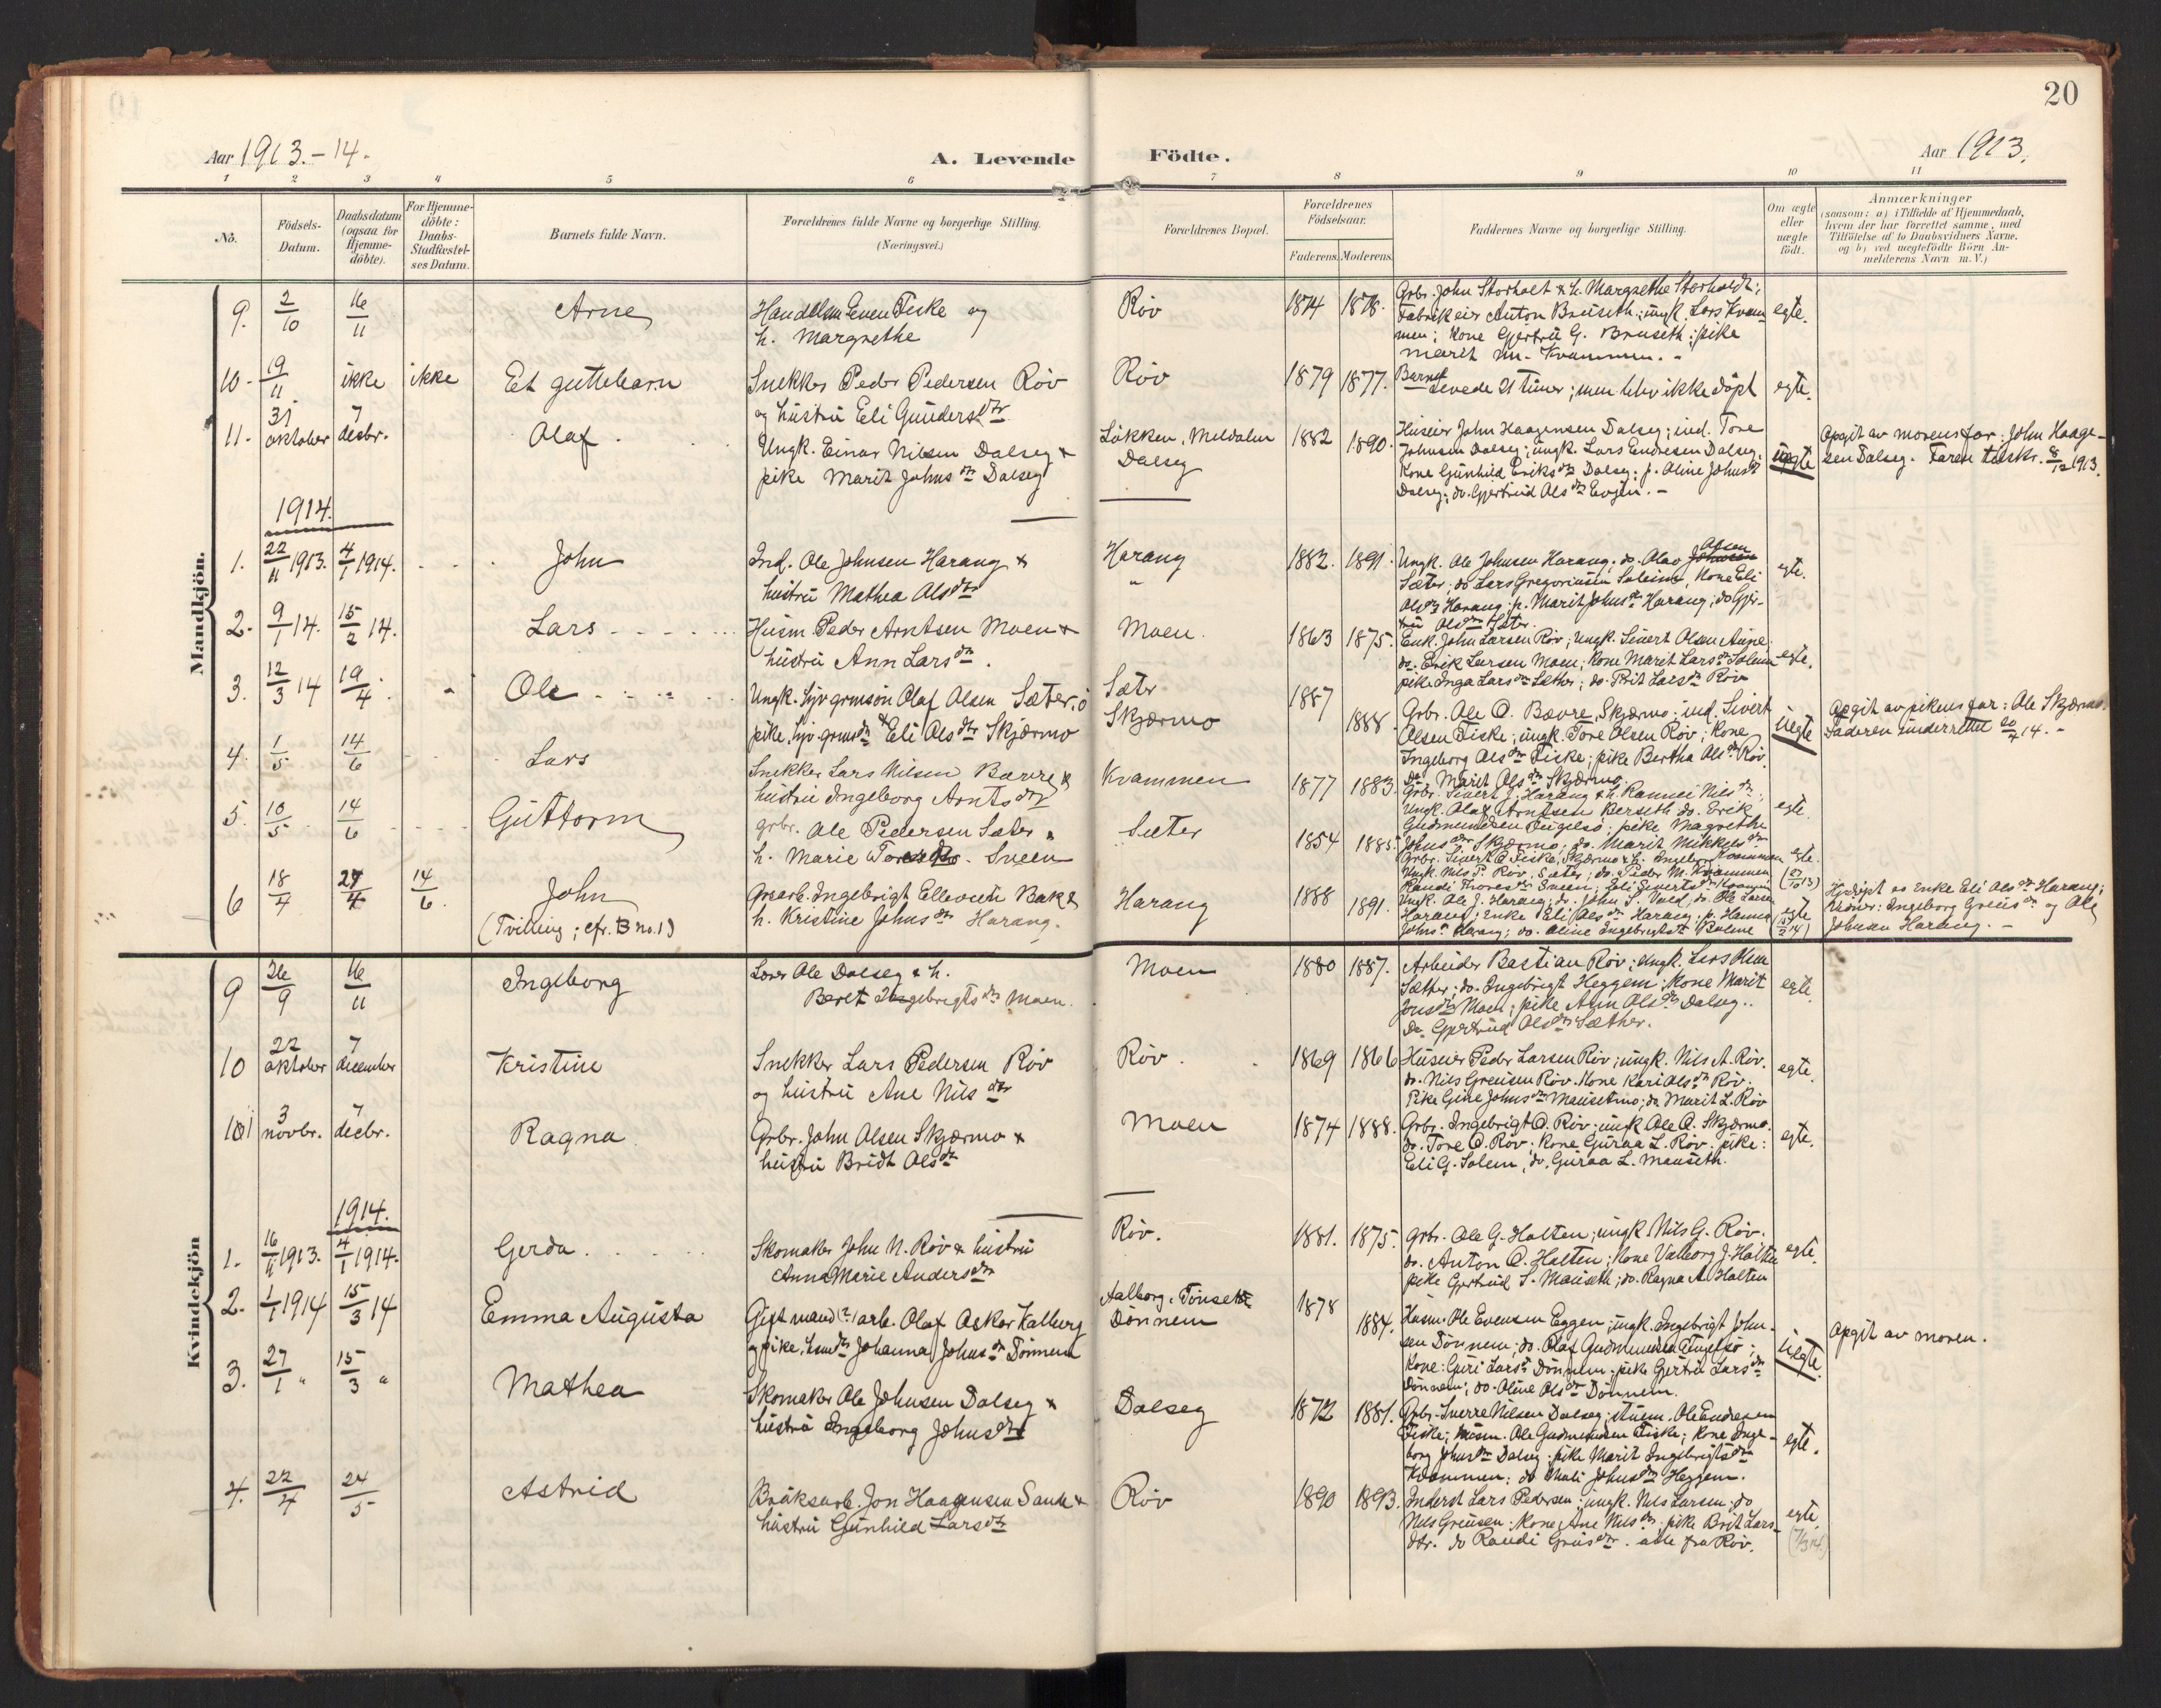 20
Aar 1913.-14.
A. Levende Födte.
Aar 1913.
1 2 3 4 5 6 7 8 9 10 11
No.
Födsels-
Datum.
Daabsdatum
(ogsaa for
Hjemme-
döbte).
For Hjemme-
döbte:
Daabs-
Stadfæstel-
ses Datum.
Barnets fulde Navn.
Forældrenes fulde Navne og borgerlige Stilling.
(Næringsvei.)
Forældrenes Bopæl.
Forældrenes
Födselsaar.
Faderens. Moderens.
Faddernes Navne og borgerlige Stilling.
Om ægte
eller
uægte
födt.
Anmærkninger
(saasom: a) i Tilfælde af Hjemmedaab,
hvem der har forrettet samme, med
Tilföielse af to Daabsvidners Navne,
og b) ved uægtefödte Börn An-
melderens Navn m. V.)
Mandkjön.
9. 2/10 16/11 Arne
Handelsm Even Fiske og
h. Margrethe
Röv 1874 1878.
Grbr. John Storholt & h. Margrethe Storholdt;
Fabrikeier Anton Bruseth; ungk. Lars Kvam-
men; Kone Gjertru G. Bruseth; pike
Marit M. Kvammen. -
egte.
10- 19/11 ikke ikke Et guttebarn
Snekker Peder Pedersen Röv
og hustru Eli Gunders dtr
Röv 1879 1877.
Barnet
levede 21 timer; men blev ikke döpt
egte.
11. 31 oktober 7 decbr. Olaf
Ungk. Einar Nilsen Dalseg &
pike Marit Johns dtr Dalseg
Lökken, Meldalen
Dalseg
1882 1890.
Huseier John Haagensen Dalseg; ind. Tore
Johnsen Dalseg; ungk. Lars Endresen Dalseg;
Kone Gunhild Eriks dtr Dalseg; p. Oline Johns dtr
Dalseg; do. Gjertrud Ols dtr Evjen. -
uegte
Opgit av morens far: John Haage-
sen Dalseg. Faren tilskr. 8/12 1913.
1914.
1. 22/11 1913. 4/1 1914. John
Ind. Ole Johnsen Harang &
hustru Mathea Ols dtr
Harang
1882. 1891.
Ungk. Ole Johnsen Harang; do. Olav Olsen
Sæter; do Lars Gregoriusen Solem, Kone Eli
Ols dtr Harang; p. Marit Johns dtr Harang; do Gjer-
tru Ols dtr Sæter.
egte.
2. 9/1 14. 15/2 14. Lars
Husm. Peder Arntsen Moen &
hustru Ann Lars dtr.
Moen. 1863 1875.
Enk. John Larsen Röv; Ungk. Sivert Olsen Aune;
do. Erik Larsen Moen; Kone Marit Lars dtr Solem
pike Inga Lars dtr Sæther; do. Brit Lars dtr Röv
egte.
3. 12/3 14 19/4. Ole
Ungk. hjv. grmsön Olaf Olsen Sæter. &
pike, hjv. grmdtr Eli Ols dtr Skjærmo
Sæter
Skjærmo
1887
1888.
Grbr. Ole O. Bævre, Skjærmo; ind. Sivert
Olsen Fiske; ungk. Tore Olsen Röv; Kone
Ingeborg Ols dtr Fiske; pike Bertha Ols dtr Röv.
do Marit Ols dtr Skjærmo.
uegte
Opgit av pikens far: Ole Skjærmo.
Faderen underrettet 20/4 14. -
4. 1/5 14/6 Lars
Snekker Lars Nilsen Bævre &
hustru Ingeborg Arnts dtr
Kvammen 1877 1883.
Grbr. Sivert J. Harang & h. Rannei Nils dtr;
Ungk. Olaf Arntsen Berseth do. Erik
Gudmundsen Tingelsö; pike Magrethe
Johns dtr Skjærmo; do. Marit Mikkels dtr
egte.
5. 10/5 14/6 Guttorm
grbr. Ole Pedersen Sæter &
h. Marie Tores dtr. Sveen
Sæter 1854 1885.
Grbr. Sivert O. Fiske, Skjærmo & h. Ingeborg Kvammen
Ungk. Nils P. Röv, Sæter; do. Peder M. Kvammen
Randi Thores dtr Sveen;
egte.
6 18/4 27/4 14/6. John
(Tvilling; cfr. B no. 1)
Grvarb. Ingebrigt Ellevsen Bak &
h. Kristine Johns dtr Harang.
Harang 1888 1891.
Ungk. Ole J. Harang; do. John S. Vold; do. Ole Larsen
Harang; Enke Eli Ols dtr Harang; p. Hanna
Johns dtr Harang; do. Oline Ingebrigts dtr
egte
Hjdöpt av Enke Eli Ols dtr Harang;
Vidner: Ingeborg Greus dtr og Ole
Johnsen Harang. -
Kvindekjön
9 26/9 16/11 Ingeborg
Lærer Ole Dalseg & h.
Beret Ingebrigts dtr Moen.
Moen 1880 1887.
Arbeider Bastian Röv; ungk. Lars
Sæther; do. Ingebrigt Heggem; Kone Marit
Jons dtr Moen; pike Ann Ols dtr Dalseg.
do. Gjertrud Ols dtr Sæther.
egte.
10 22 oktober 7 december Kristine
Snekker Lars Pedersen Röv
og hustru Ane Nils dtr
Röv. 1869 1866
Huseier Peder Larsen Röv; ungk. Nils A. Röv.
do. Nils Greusen Röv. Kone Kari Ols dtr Röv.
Pike Gine Johns dtr Mausetmo; do Marit L. Röv
egte.
11 3 novbr. 7 decbr. Ragna
Grbr. John Olsen Skjærmo &
hustru Bridt Ols dtr
Moen 1874 1888.
Grbr. Ingebrigt O. Röv; ungk. Ole O. Skjærmo.
do. Tore O. Röv; Kone Guraa L. Röv. pike:
Eli G. Solem; do. Guraa L. Mauseth.
egte.
1914.
1. 16/11 1913. 4/1 1914. Gerda
Skomaker John N. Röv & hustru
Anna Marie Anders dtr
Röv. 1881. 1875.
grbr. Ole G. Holten; ungk. Nils G. Röv.
do. Anton O. Holten; Kone Valborg J. Holten
pike Gjertrud S. Mauseth; do. Ragna A. Holten
egte.
2. 1/1 1914 15/3 14 Emma Augusta
Gift mand (?) arb. Olaf Oskar Kalberg
og pike, husmdtr Johanna Johns dtr Dönnem
Aalborg, Tönset
Dönnem
1878
1884.
Husm. Ole Evensen Eggen; ungk. Ingebrigt John-
sen Dönnem; do. Olaf Gudmundsen Tingelsö;
Kone: Guri Lars dtr Dönnem; pike Gjertru Lars dtr
Dönnem; do. Oline Ols dtr Dönnem.
uegte.
Opgit av moren.
3. 27/1 " 15/3 " Mathea
Skomaker Ole Johnsen Dalseg &
hustru Ingeborg Johns dtr
Dalseg 1872 1881.
Grbr. Sverre Nilsen Dalseg; Ole Endresen
Fiske; husm. Ole Gudmundsen Fiske; Kone Inge-
borg Johns dtr Dalseg; pike Marit Ingebrigts dtr
Kvammen; do Mali Johns dtr Heggem.
egte.
4. 22/4 24/5 Astrid
Bruksarb. Jon Haagensen Sande &
hustru Gunhild Lars dtr
Röv 1890 1893.
Inderst Lars Pedersen; ungk. Nils Larsen; do
Nils Greusen; Kone Ane Nils dtr. pike Brit Lars-
dtr. do Randi Greus dtr. alle fra Röv.
egte.